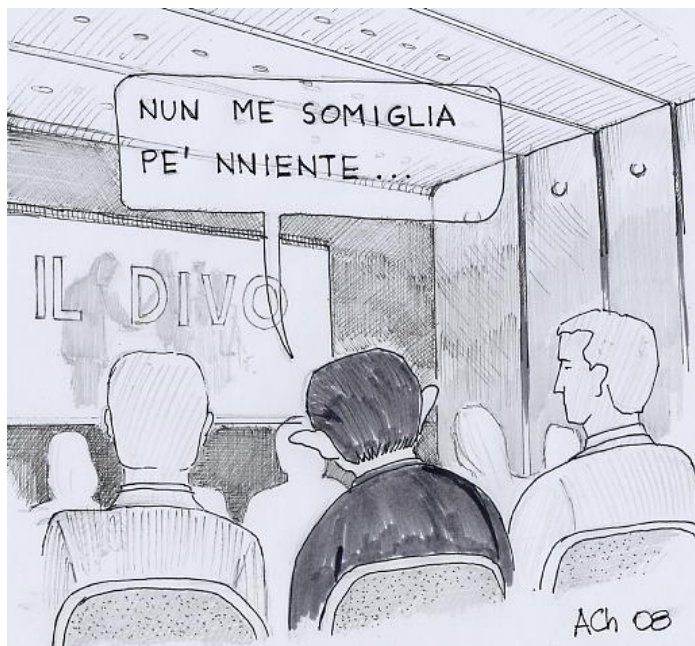 NUN ME SOMIGLIA
PE' NNIENTE...
IL DIVO
ACh 08